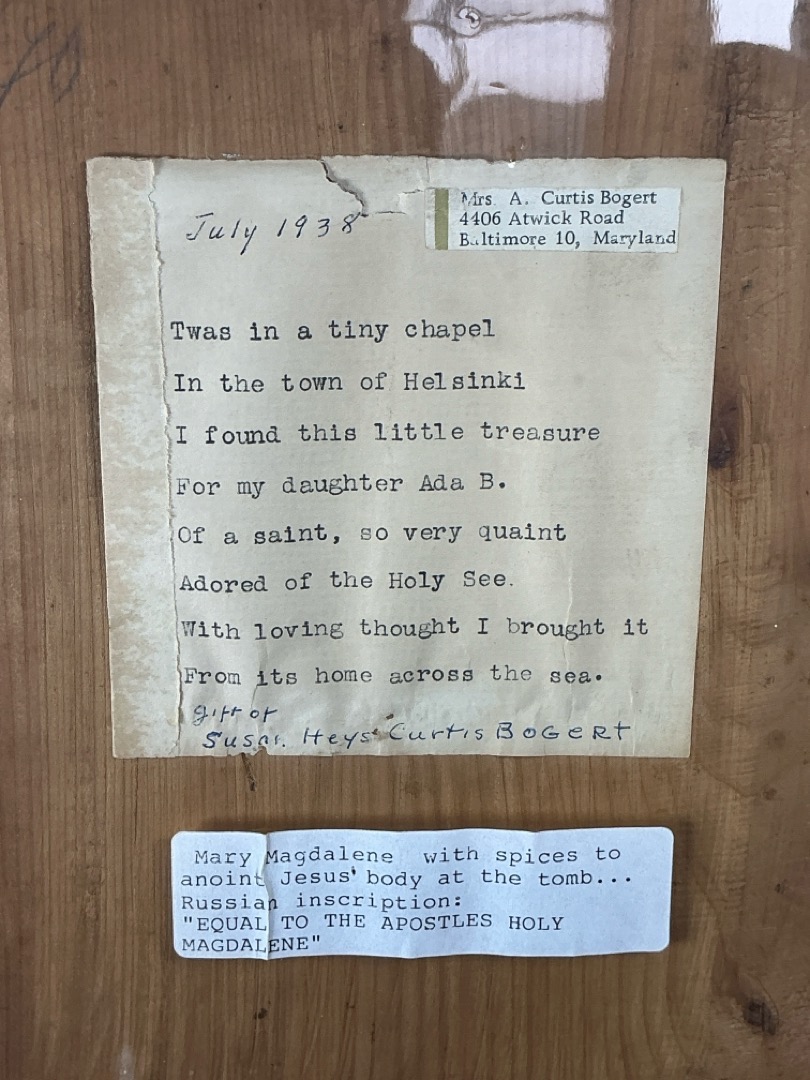 July 1938
Mrs. A. Curtis Bogert
4406 Atwick Road
Baltimore 10, Maryland
Twas in a tiny chapel
In the town of Helsinki
I found this little treasure
For my daughter Ada B.
Of a saint, so very quaint
Adored of the Holy See.
With loving thought I brought it
From its home across the sea.
gift of
Heys Curtis BOGERT
Mary Magdalene with spices to
anoint Jesus' body at the tomb...
Russian inscription:
"EQUAL TO THE APOSTLES HOLY
MAGDALENE"